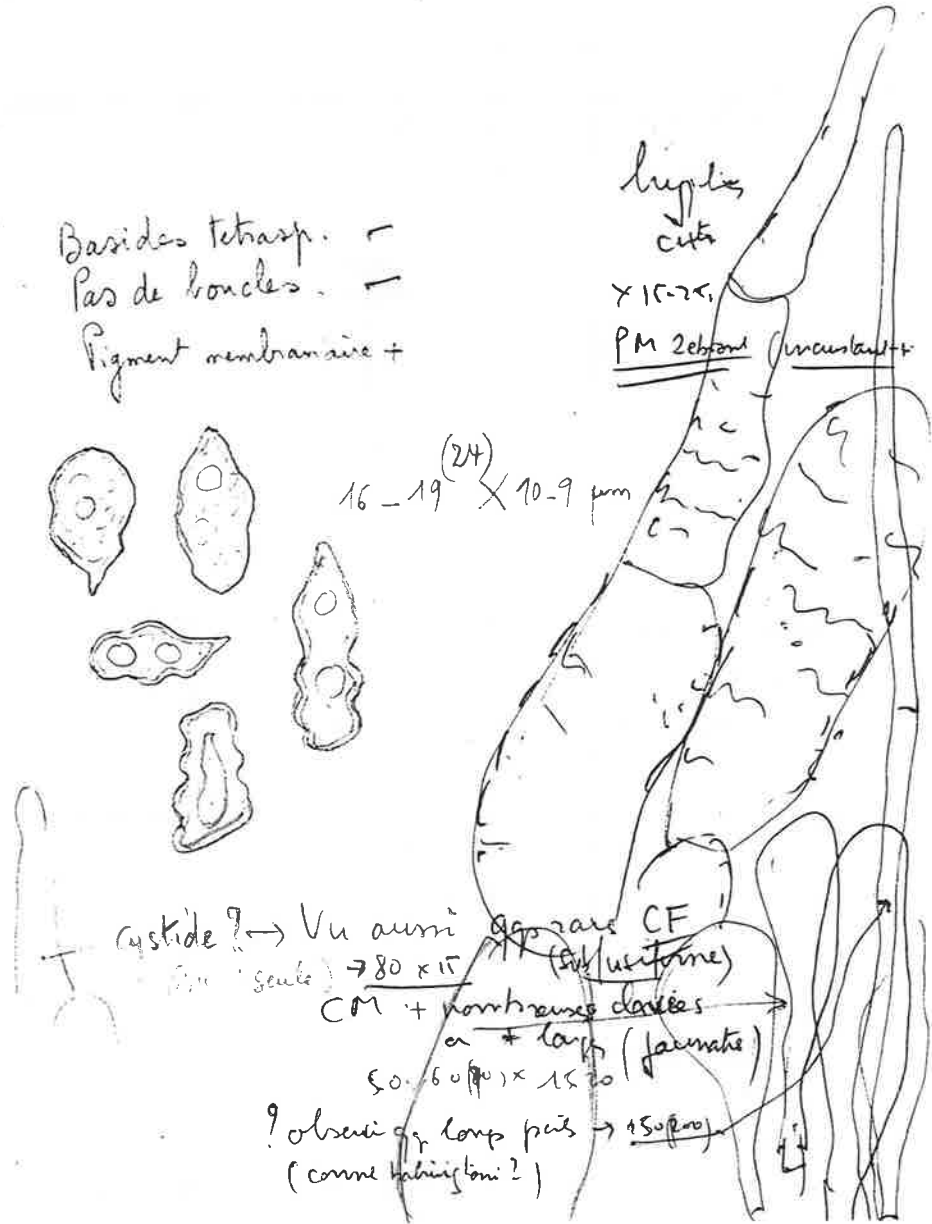 Basides tetrasp. -
Pas de boucles. -
Pigment membranaire +
hyphes
cut
× 15-25
PM zébrant (incrustant ++
16 – 19 (24) × 10-9 µm
cystide ? → Vu aussi qqs rars CF
seule) → 80 × 15 (subfusiforme)
CM + nombreuses clavées
a + larges (jaunatre)
50. 60 × 15 20
? observé qq longs poils → 150 (200)
(comme babingtonii ?)